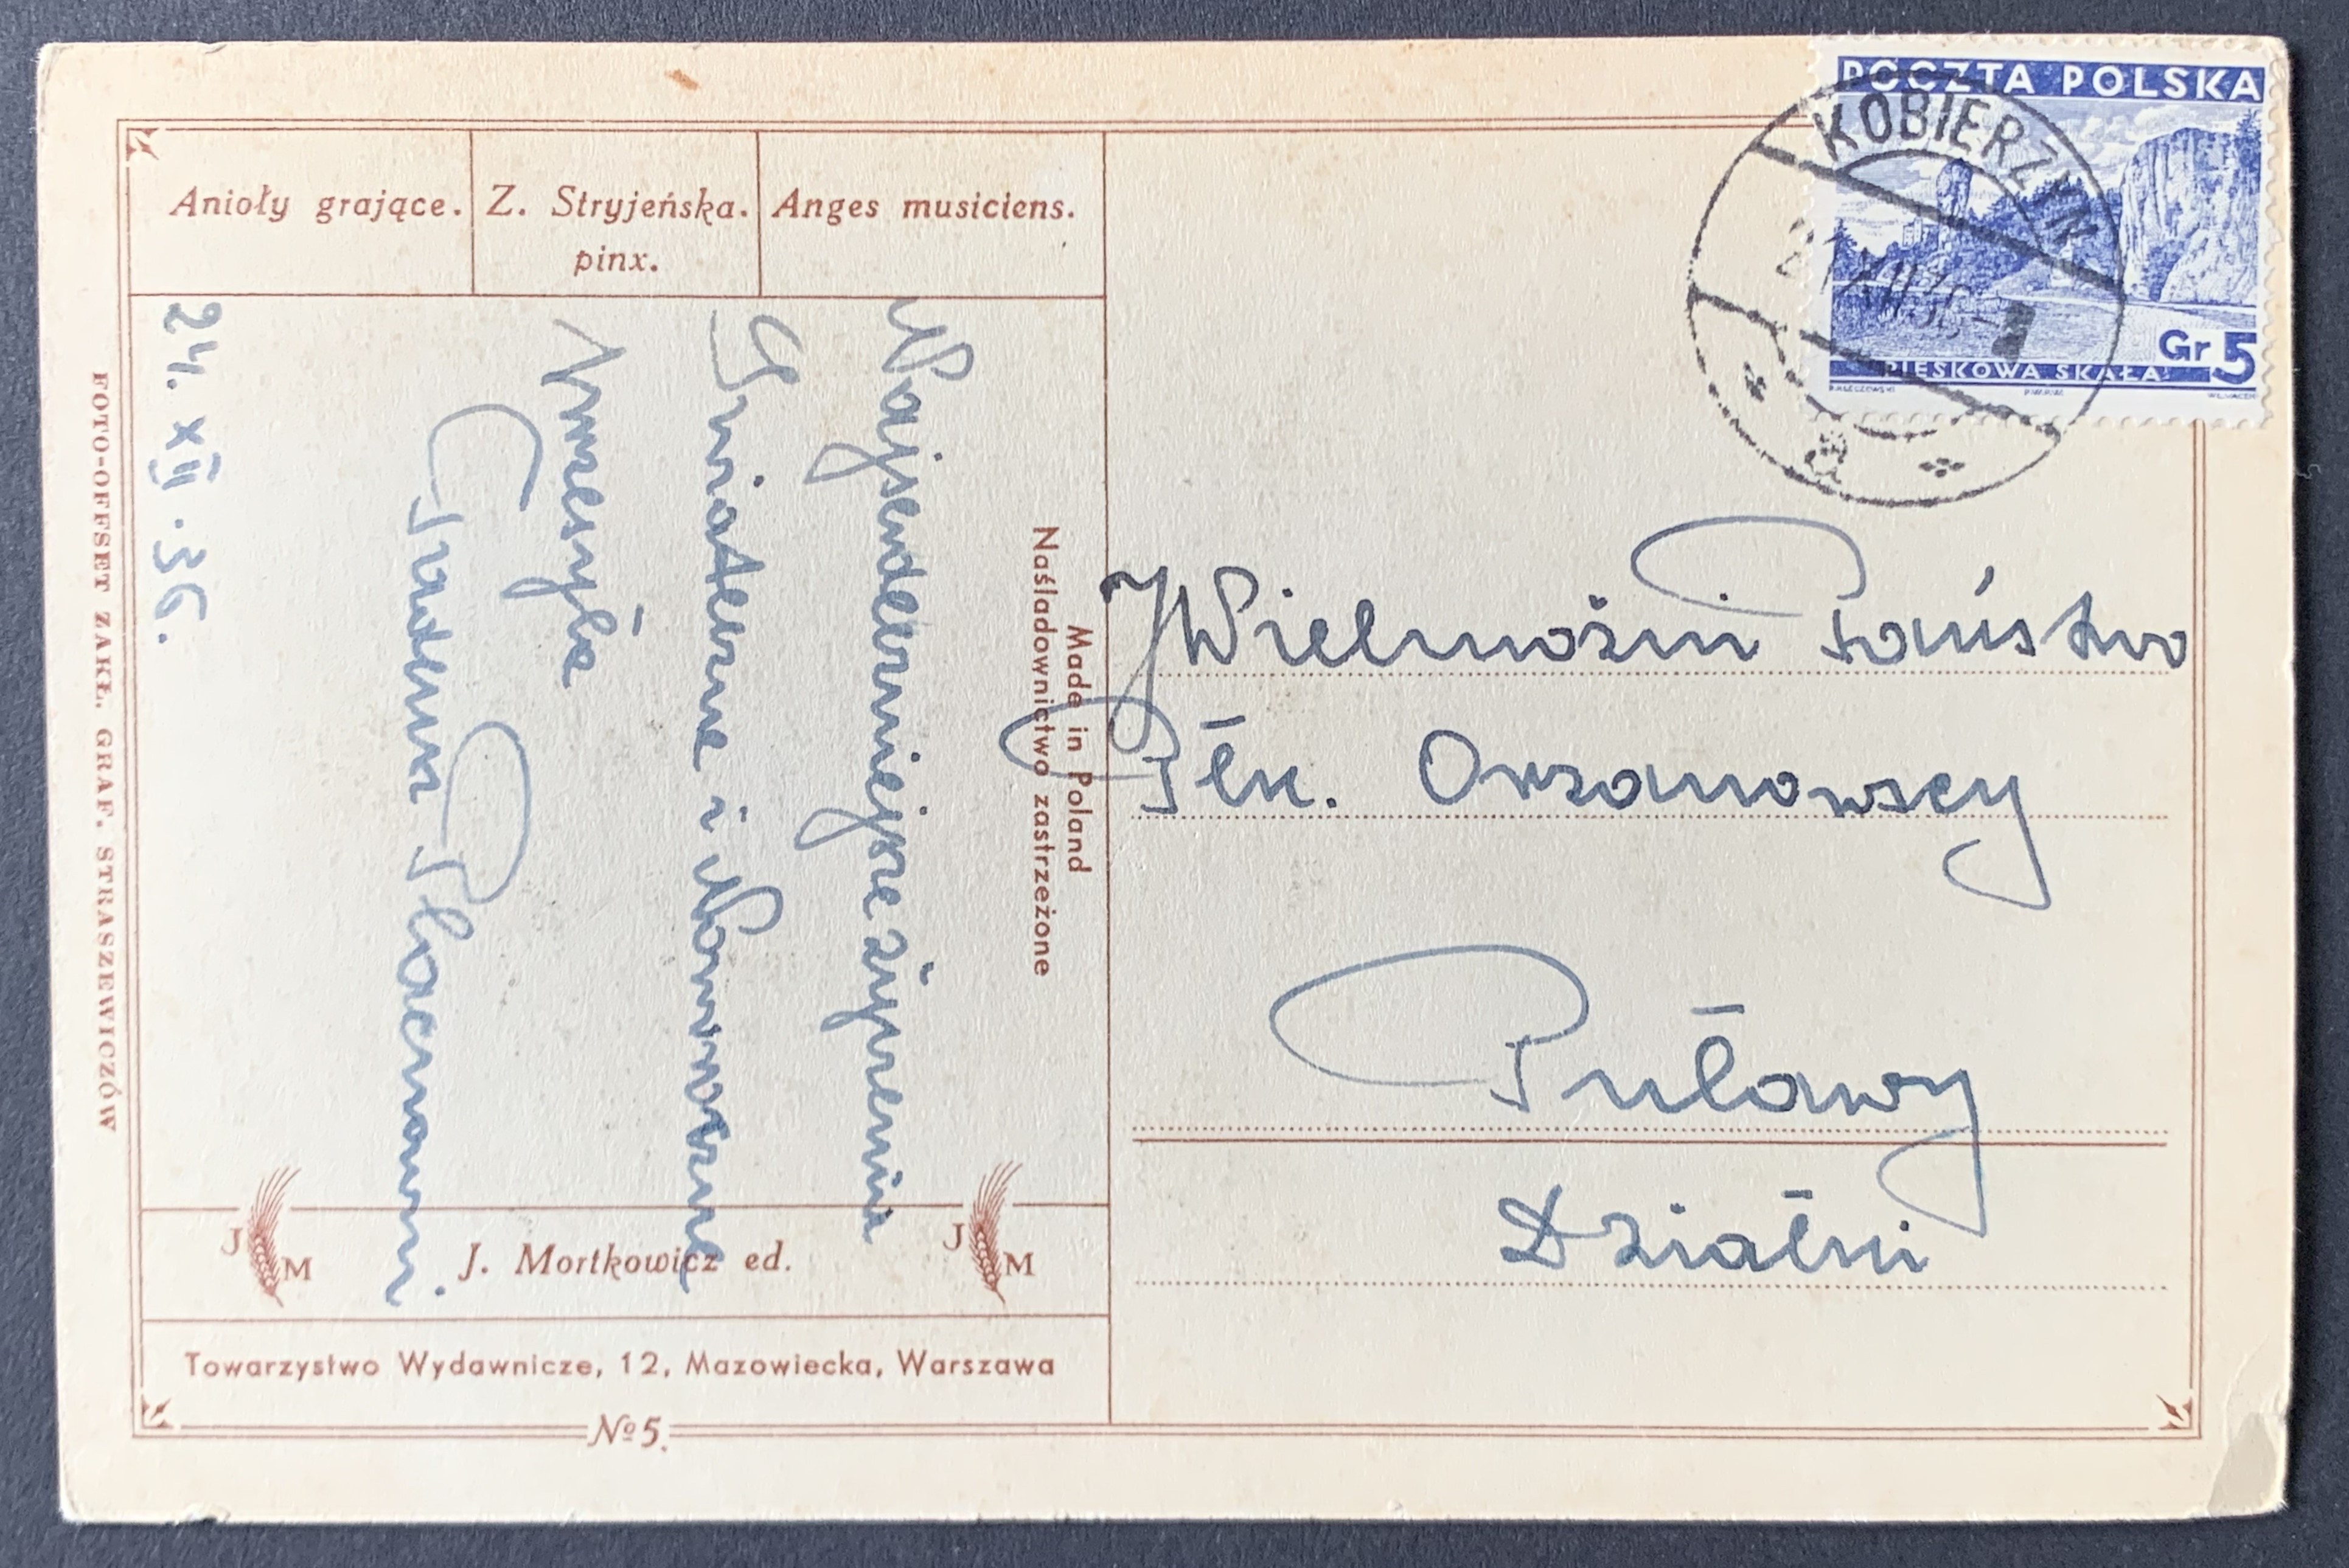 POCZTA POLSKA
KOBIERZYN
21 XII 36
a
Gr 5
PIESKOWA SKAŁA
Anioły grające.
Z. Stryjeńska.
pinx.
Anges musiciens.
Najserdeczniejsze życzenia
Świąteczne i Noworoczne
przesyła
24. XII. 36.
Made in Poland
Naśladownictwo zastrzeżone
FOTO-OFFSET ZAKŁ. GRAF. STRASZEWICZÓW
JWielmożni Państwo
Płk. Orzanowscy
Puławy
Działki
J M
J. Mortkowicz ed.
J M
Towarzystwo Wydawnicze, 12, Mazowiecka, Warszawa
№ 5.